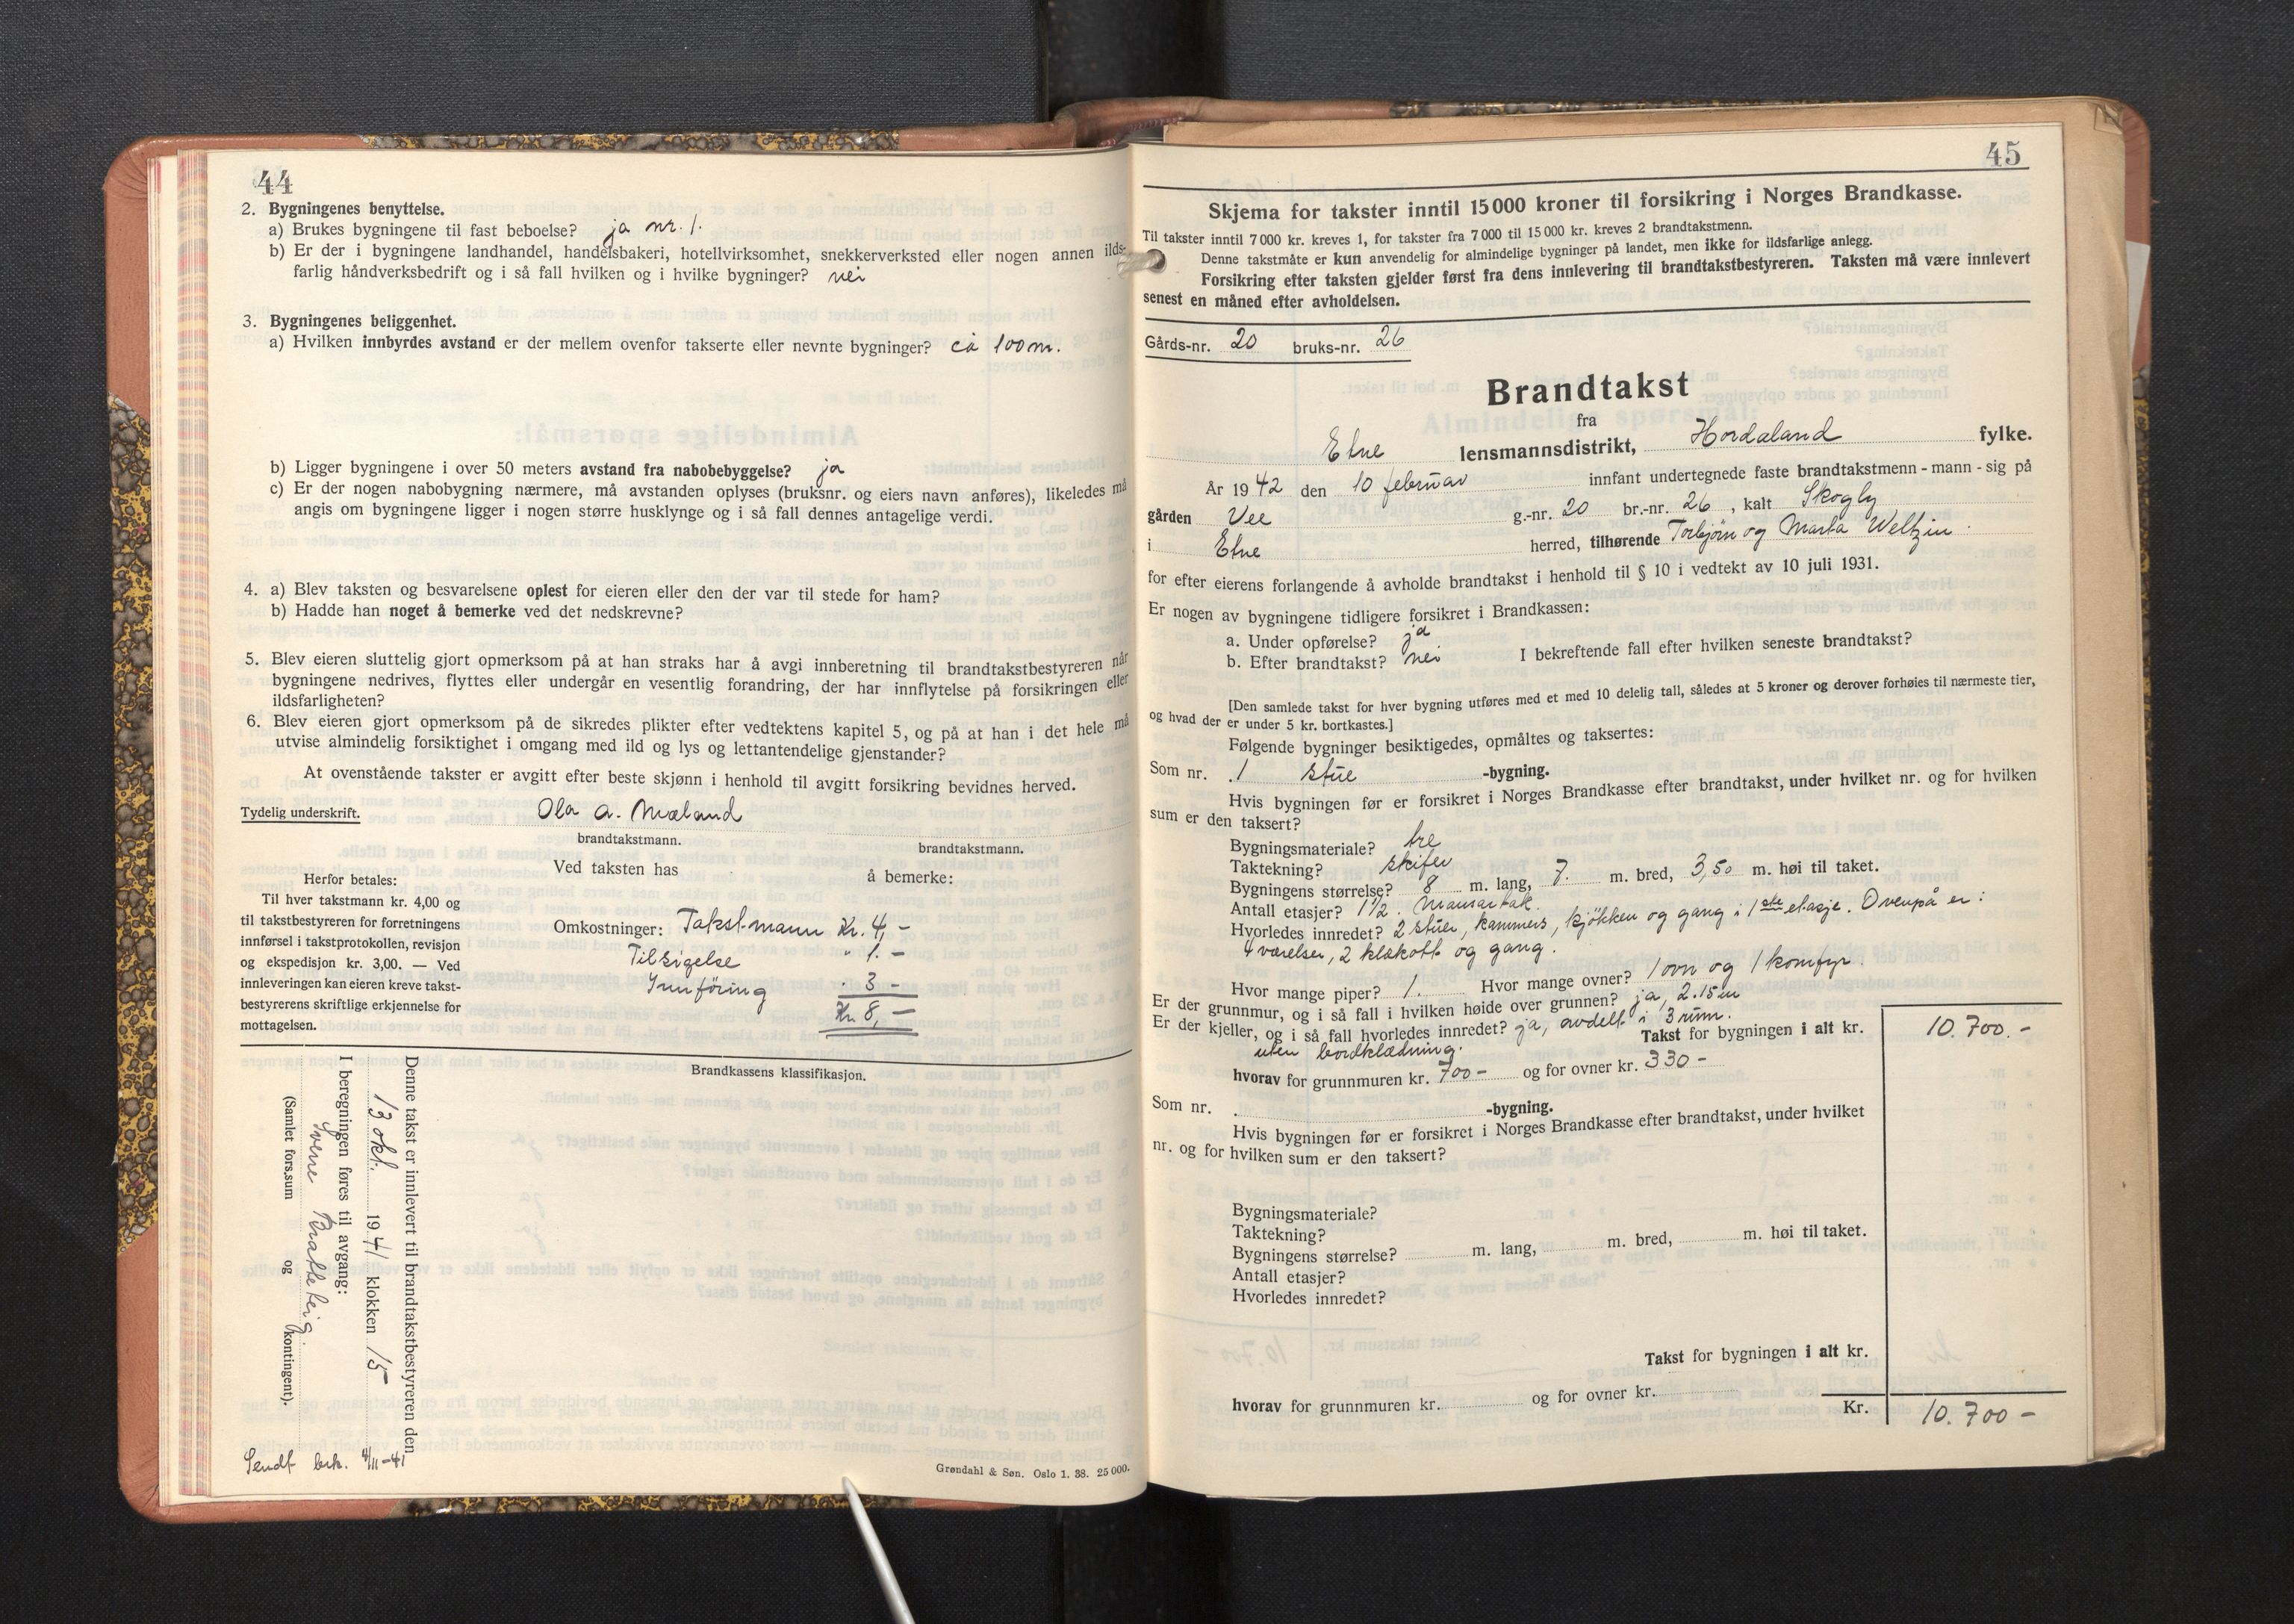 44
2. Bygningenes benyttelse.
a) Brukes bygningene til fast beboelse? ja nr. 1.
b) Er der i bygningene landhandel, handelsbakeri, hotellvirksomhet, snekkerverksted eller nogen annen ilds-
farlig håndverksbedrift og i så fall hvilken og i hvilke bygninger? nei
3. Bygningenes beliggenhet.
a) Hvilken innbyrdes avstand er der mellem ovenfor takserte eller nevnte bygninger? ca 100 m.
b) Ligger bygningene i over 50 meters avstand fra nabobebyggelse? ja
c) Er der nogen nabobygning nærmere, må avstanden oplyses (bruksnr. og eiers navn anføres), likeledes må
angis om bygningene ligger i nogen større husklynge og i så fall dennes antagelige verdi.
4. a) Blev taksten og besvarelsene oplest for eieren eller den der var til stede for ham?
b) Hadde han noget å bemerke ved det nedskrevne?
5. Blev eieren sluttelig gjort opmerksom på at han straks har å avgi innberetning til brandtakstbestyreren når
bygningene nedrives, flyttes eller undergår en vesentlig forandring, der har innflytelse på forsikringen eller
ildsfarligheten?
6. Blev eieren gjort opmerksom på de sikredes plikter efter vedtektens kapitel 5, og på at han i det hele må
utvise almindelig forsiktighet i omgang med ild og lys og lettantendelige gjenstander?
At ovenstående takster er avgitt efter beste skjønn i henhold til avgitt forsikring bevidnes herved.
Tydelig underskrift. Ola A. Mæland
brandtakstmann. brandtakstmann.
Ved taksten has å bemerke:
Herfor betales:
Til hver takstmann kr. 4,00 og
til takstbestyreren for forretningens
innførsel i takstprotokollen, revisjon
og ekspedisjon kr. 3,00. — Ved
innleveringen kan eieren kreve takst-
bestyrerens skriftlige erkjennelse for
mottagelsen.
Omkostninger: Takstmann Kr. 4,-
Tilsigelse " 1.-
Innföring . 3 -
Kr. 8,-
Brandkassens klassifikasjon.
Denne takst er innlevert til brandtakstbestyreren den
13 okt. 1941 klokken 15
I beregningen føres til avgang:
Sverre Bratteteig.
(Samlet fors.sum og kontingent).
Sendt brk. 4/11-41
Grøndahl & Søn. Oslo 1. 38. 25 000.
45
Skjema for takster inntil 15 000 kroner til forsikring i Norges Brandkasse.
Til takster inntil 7 000 kr. kreves 1, for takster fra 7 000 til 15 000 kr. kreves 2 brandtakstmenn.
Denne takstmåte er kun anvendelig for almindelige bygninger på landet, men ikke for ildsfarlige anlegg.
Forsikring efter taksten gjelder først fra dens innlevering til brandtakstbestyreren. Taksten må være innlevert
senest en måned efter avholdelsen.
Gårds-nr. 20 bruks-nr. 26
Brandtakst
fra
Etne lensmannsdistrikt, Hordaland fylke.
År 1942 den 10 februar innfant undertegnede faste brandtakstmenn - mann - sig på
gården Vee g.-nr. 20 br.-nr. 26, kalt Skogly
i Etne herred, tilhørende Torbjörn og Marta Weltzin.
for efter eierens forlangende å avholde brandtakst i henhold til § 10 i vedtekt av 10 juli 1931.
Er nogen av bygningene tidligere forsikret i Brandkassen:
a. Under opførelse? ja
b. Efter brandtakst? nei I bekreftende fall efter hvilken seneste brandtakst?
[Den samlede takst for hver bygning utføres med et med 10 delelig tall, således at 5 kroner og derover forhøies til nærmeste tier,
og hvad der er under 5 kr. bortkastes.]
Følgende bygninger besiktigedes, opmåltes og taksertes:
Som nr. 1 stue -bygning.
Hvis bygningen før er forsikret i Norges Brandkasse efter brandtakst, under hvilket nr. og for hvilken
sum er den taksert?
Bygningsmateriale? tre
Taktekning? skifer
Bygningens størrelse? 8 m. lang, 7. m. bred, 3,50 m. høi til taket.
Antall etasjer? 1 1/2. Mansartak.
Hvorledes innredet? 2 stuer, kammers, kjökken og gang i 1ste etasje. Ovenpå er:
4 værelser, 2 klskott og gang.
Hvor mange piper? 1. Hvor mange ovner? 1 ovn og 1 komfyr.
Er der grunnmur, og i så fall i hvilken høide over grunnen? ja, 2.15 m
Er der kjeller, og i så fall hvorledes innredet? ja, avdelt i 3 rum.
uten bordklædning.
Takst for bygningen i alt kr. 10.700.-
hvorav for grunnmuren kr. 700- og for ovner kr. 330-
Som nr. -bygning.
Hvis bygningen før er forsikret i Norges Brandkasse efter brandtakst, under hvilket
nr. og for hvilken sum er den taksert?
Bygningsmateriale?
Taktekning?
Bygningens størrelse? m. lang, m. bred, m. høi til taket.
Antall etasjer?
Hvorledes innredet?
Takst for bygningen i alt kr.
hvorav for grunnmuren kr. og for ovner kr.
Kr. 10.700-